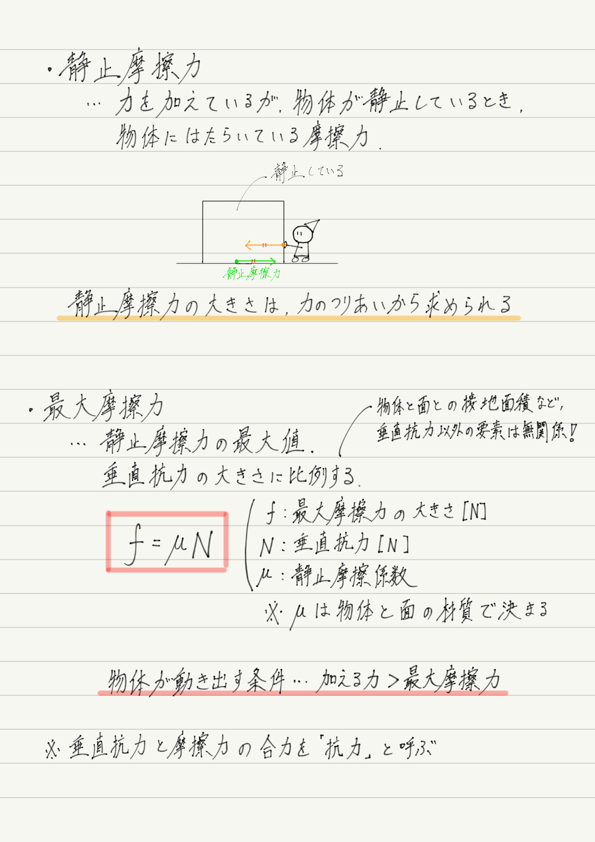 ・静止摩擦力
… 力を加えているが、物体が静止しているとき、
物体にはたらいている摩擦力.
静止している
静止摩擦力
静止摩擦力の大きさは、力のつりあいから求められる
・最大摩擦力
… 静止摩擦力の最大値.
垂直抗力の大きさに比例する.
物体と面との接地面積など、
垂直抗力以外の要素は無関係!
f = μN
f : 最大摩擦力の大きさ[N]
N : 垂直抗力[N]
μ : 静止摩擦係数
※ μは物体と面の材質で決まる
物体が動き出す条件… 加える力>最大摩擦力
※ 垂直抗力と摩擦力の合力を「抗力」と呼ぶ